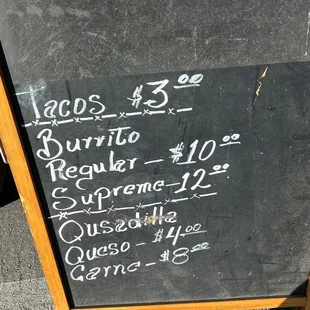 Tacos $3.00
Burrito
Regular - $10.00
Supreme - 12.00
Qusadilla
Queso - $4.00
Carne - $8.00